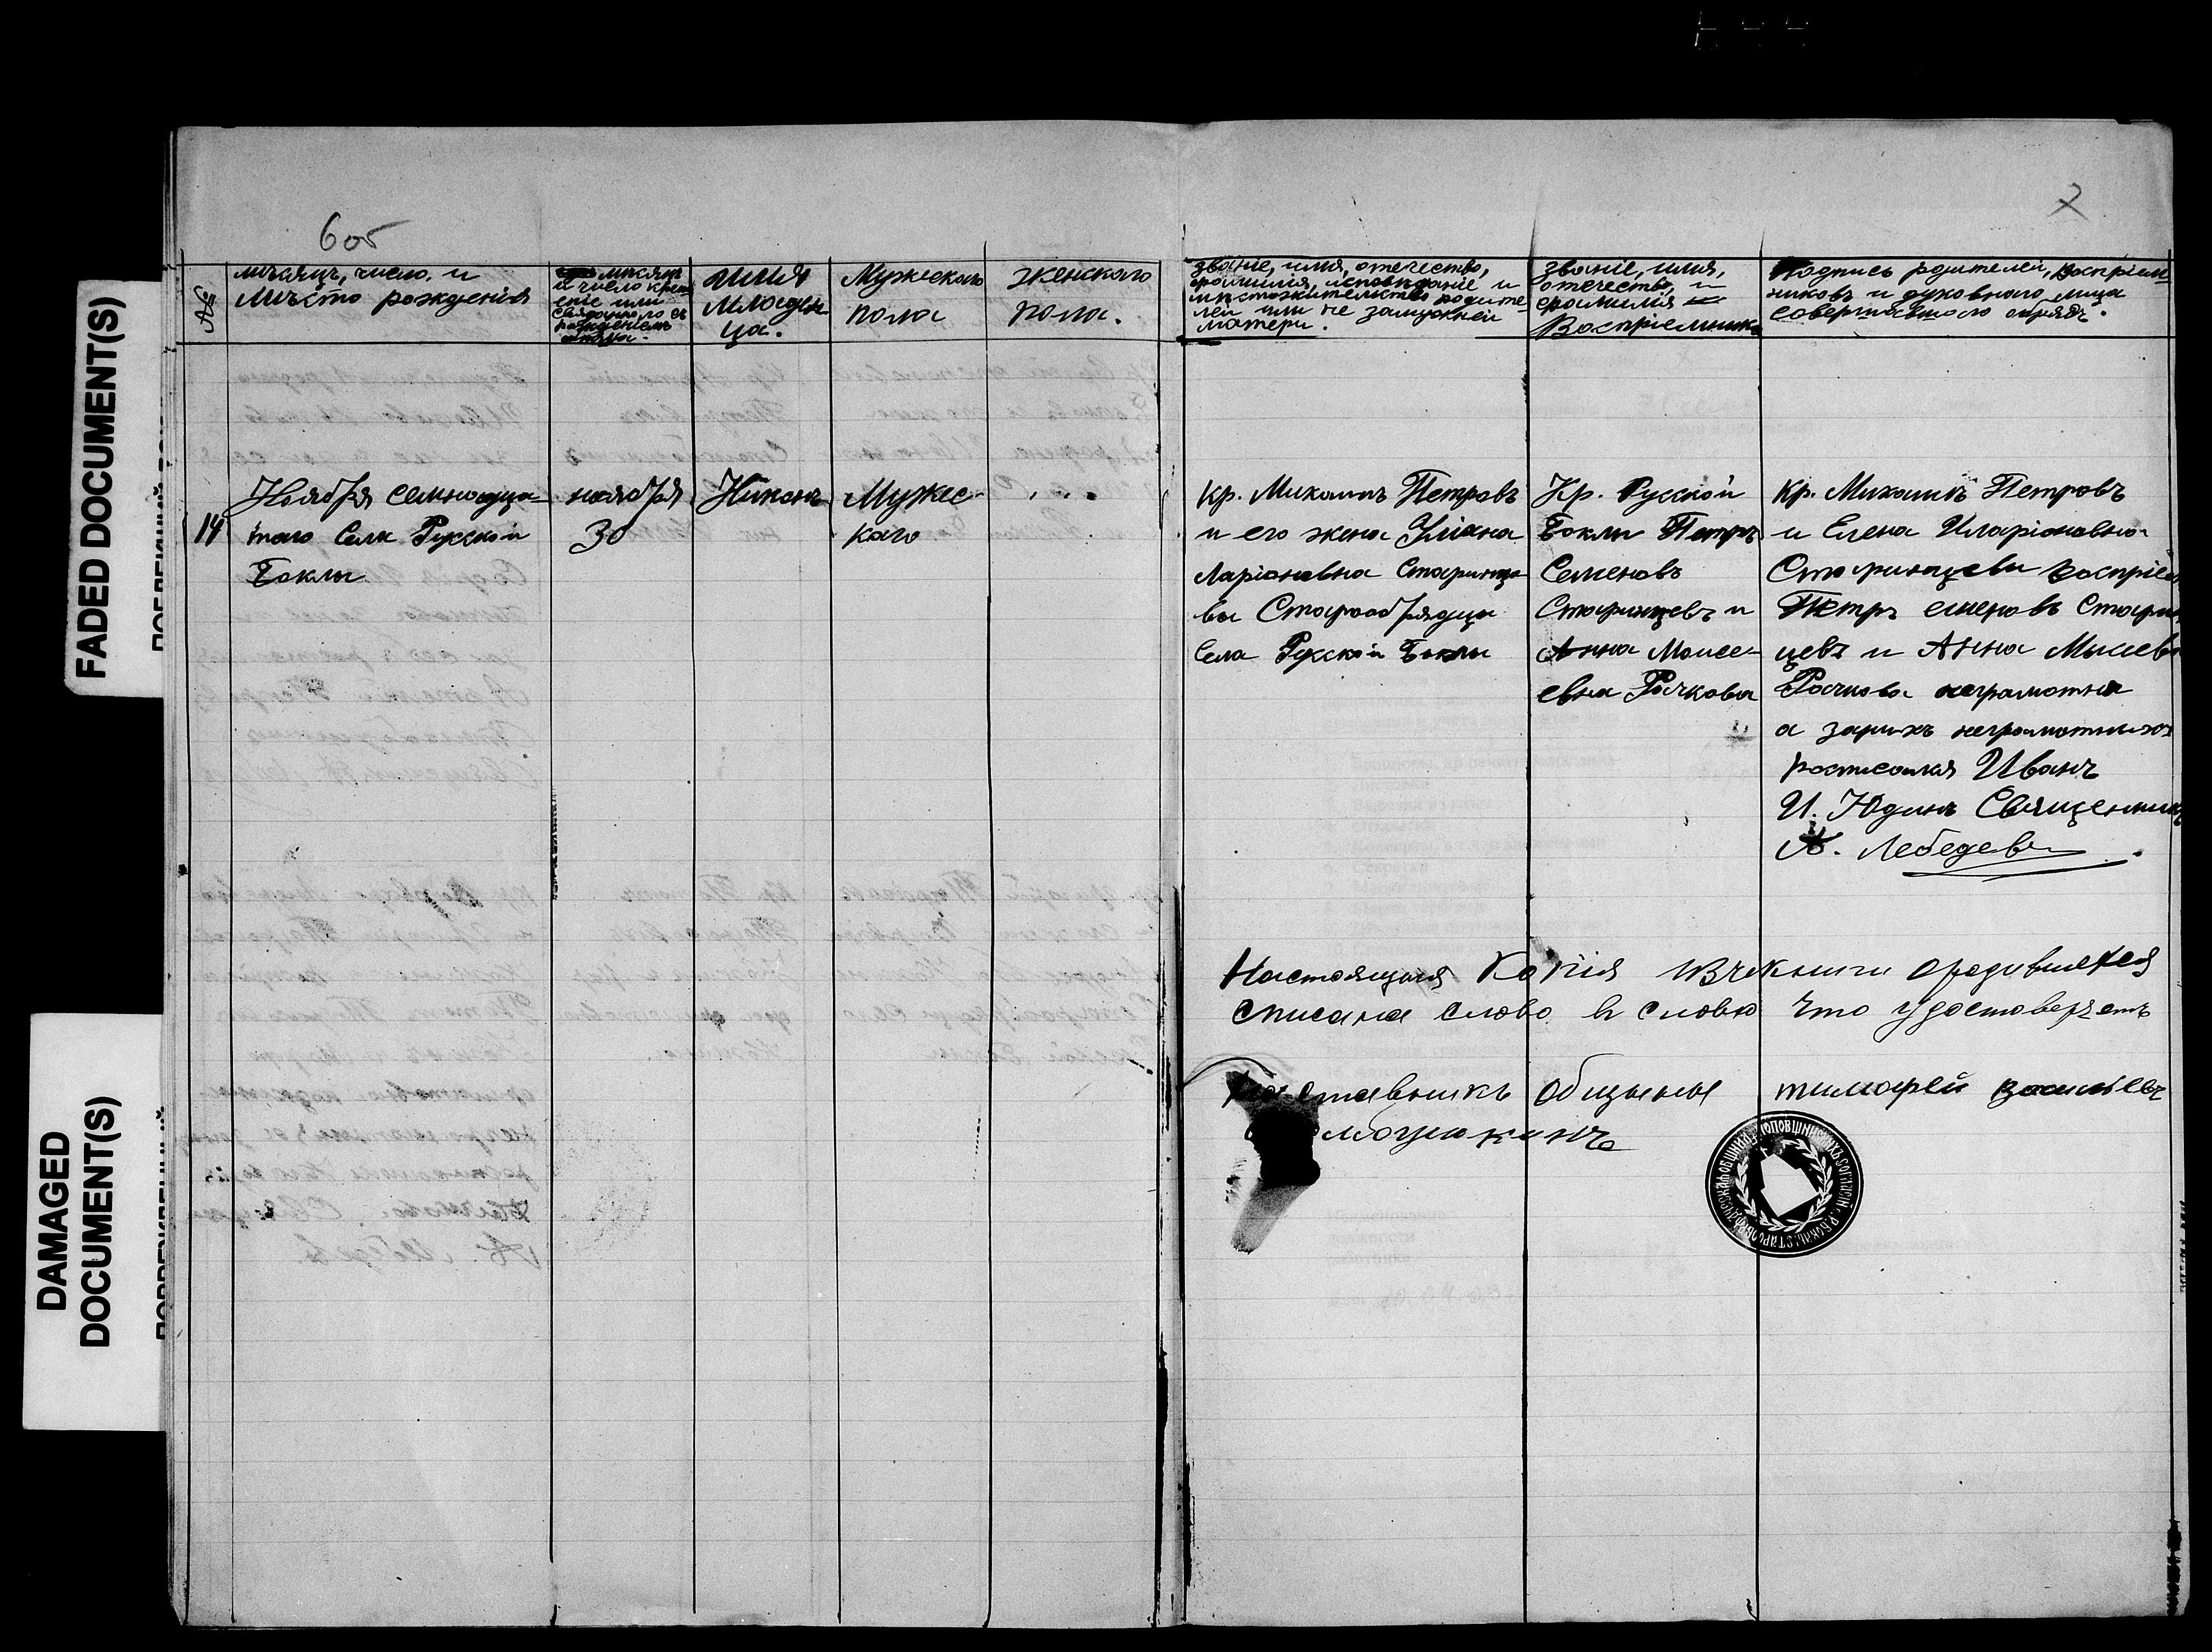 FADED DOCUMENT(S)
DAMAGED
DOCUMENT(S)
6об
7
№
мѣсяцъ, число, и
мѣсто рожденія
мѣсяцъ
и число крещ
еніе или
рожденіемъ
имия
младен
ца.
Мужескаго
пола
женскаго
пола.
званіе, имя, отечество,
фамилія, исповѣданіе и
мѣстожительство родите
лей или не замужней
матери.
званіе, имя,
отечество, и
фамилія
Воспріемника
Подпись родителей, воспріем
никовъ и духовнаго лица
совершавшаго обрядъ.
14
Ноября семнадца-
таго Села Русской
Баклы
ноября
30
Никонъ
Мужес-
каго
" "
Кр. Михаилъ Петровъ
и его жена Улiана
Ларіоновна Старинце
вы Старообрядцы
Села Русской Баклы
Кр. Русской
Баклы Петръ
Семеновъ
Старинцевъ и
Анна Моисе-
евна Рачкова
Кр. Михаилъ Петровъ
и Елена Иларіоновна
Старинцевы воспріем
Петръ еменовъ Старин
цевъ и Анна Мысевн
Рачкова неграмотны
а занихъ неграмотныхъ
росписался Иванъ
И. Юдинъ Священникъ
А. Лебедевъ
Настоящия Копiя изъ книги ородившехся
списана слово в слово что удостоверяетъ
общины тимофей василіевъ